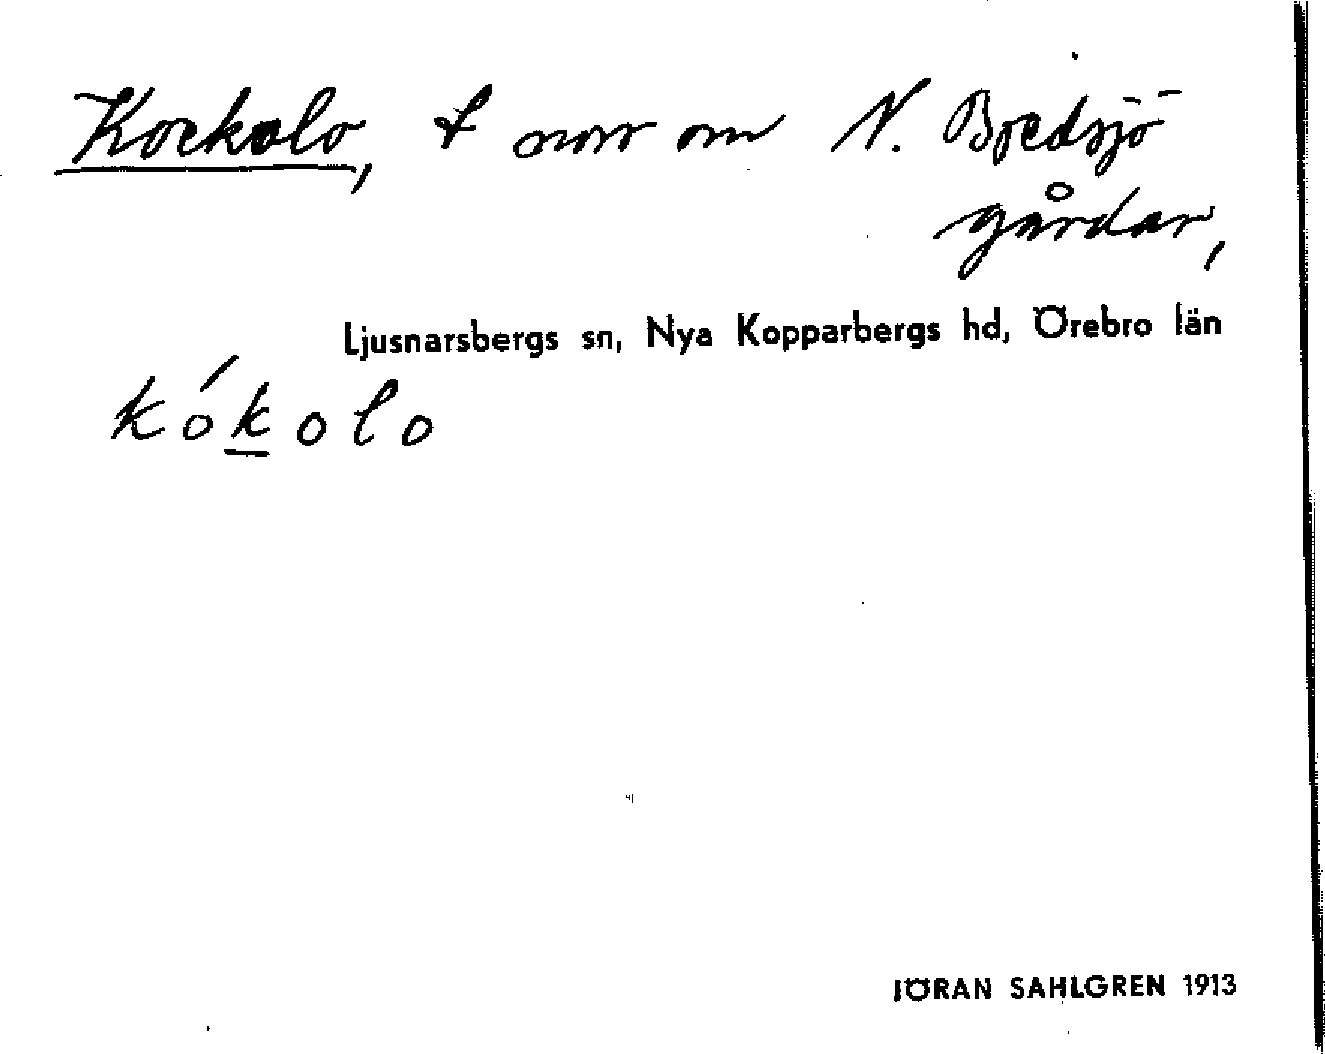 Kockolo, t norr om N. Bredsjö
gårdar,
Ljusnarsbergs sn, Nya Kopparbergs hd, Örebro län
kókolo
JÖRAN SAHLGREN 1913